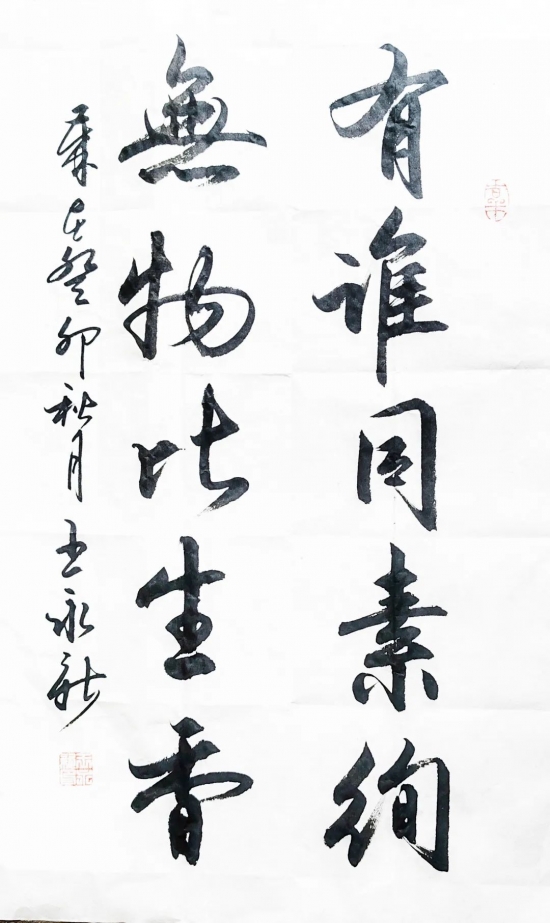 有谁同素绚
無物比生香
歲在癸卯秋月王永